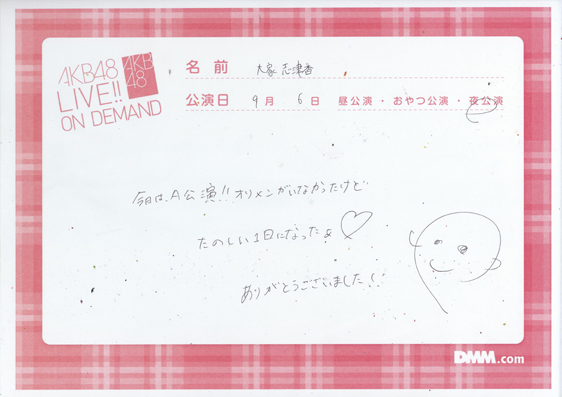 AKB48
LIVE!!
ON DEMAND
AKB
48
名前 大家志津香
公演日 9月 6日 昼公演・おやつ公演・夜公演
今日は、A公演!!オリメンがいなかったけど
たのしい1日になったよ♡
ありがとうございました!
DMM.com